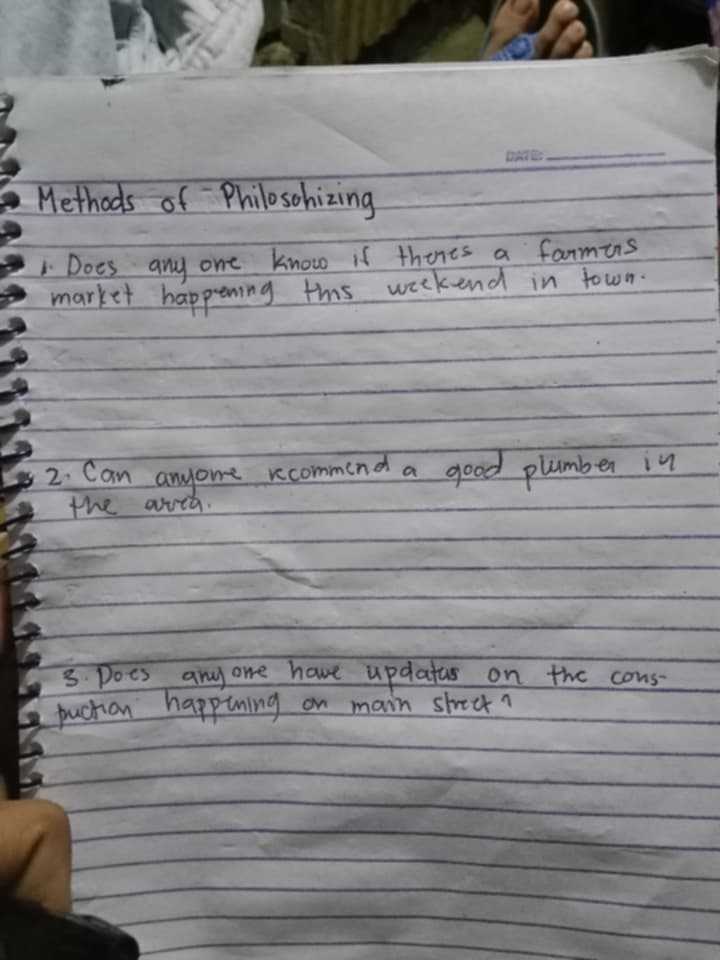 DATE:
Methods of Philosohizing
1. Does any one know if theres a farmers
market happening this weekend in town.
2. Can anyone recommend a good plumber in
the area.
3. Does any one have updates on the cons-
truction happening on main street?